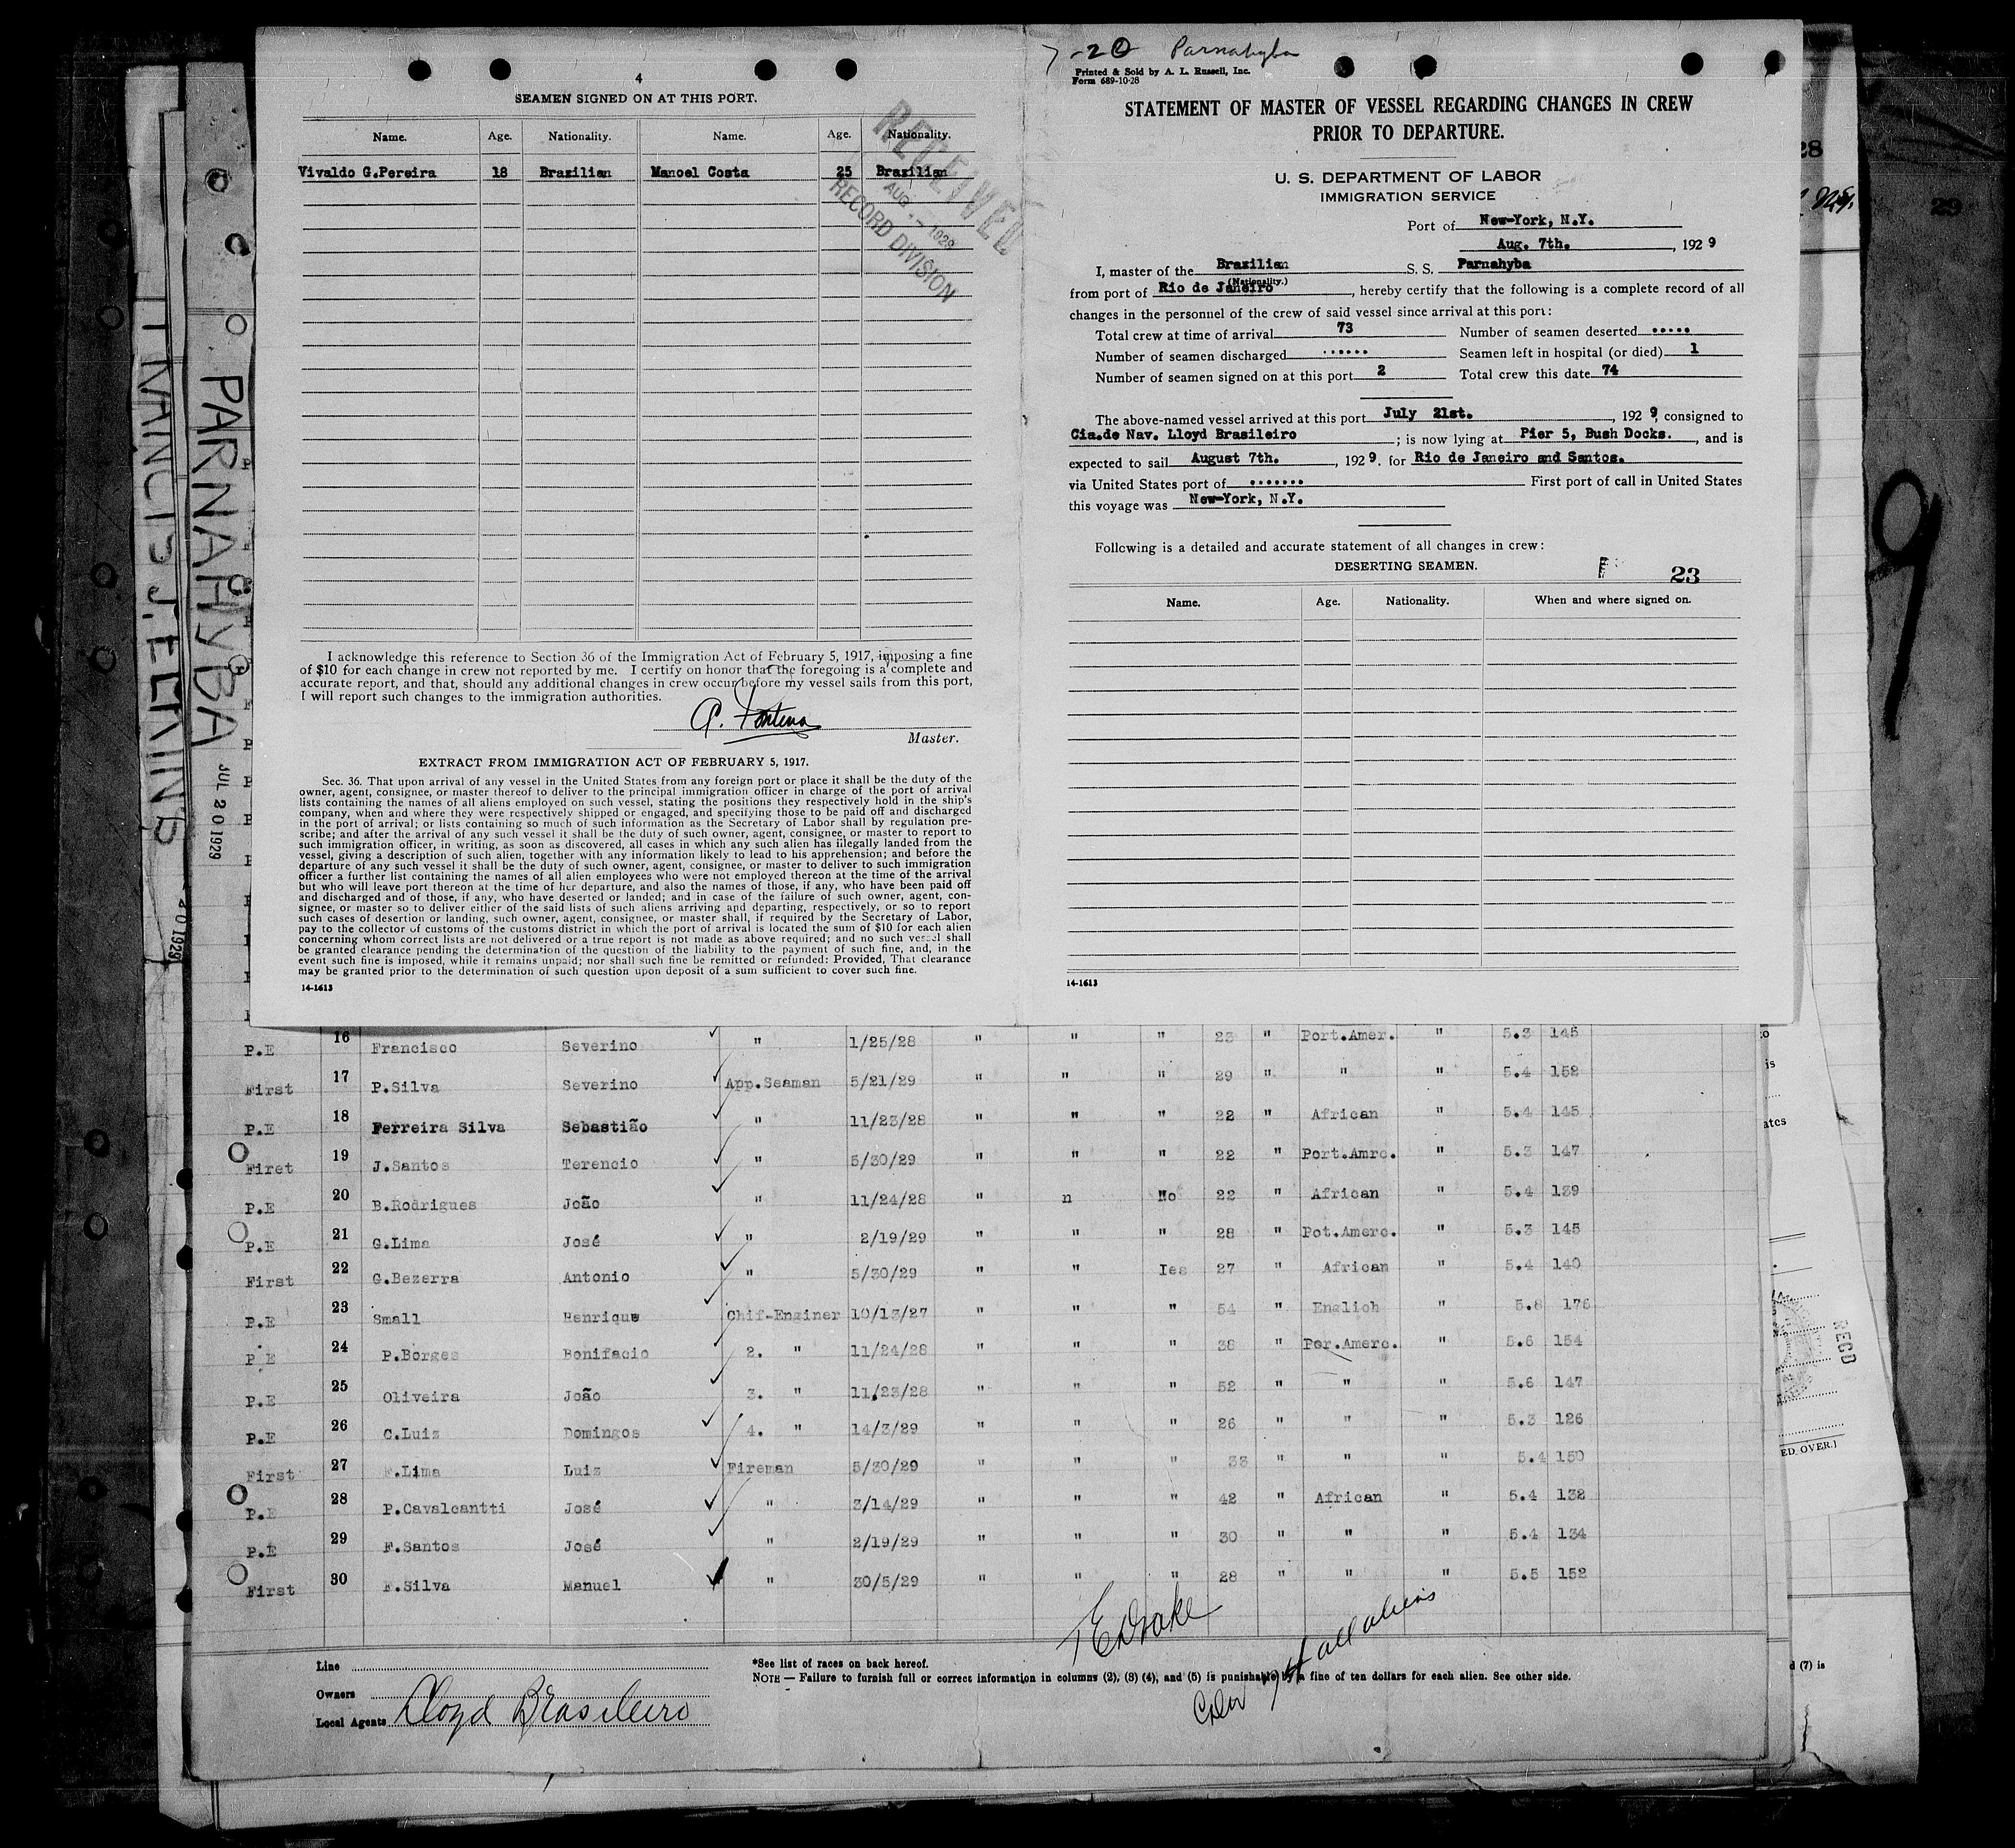 4
SEAMEN SIGNED ON AT THIS PORT.
Name. Age. Nationality. Name. Age. Nationality.
Vivaldo G.Pereira 18 Brazilian Manoel Costa 25 Brazilian
RECEIVED
AUG - 7 1929
RECORD DIVISION
I acknowledge this reference to Section 36 of the Immigration Act of February 5, 1917, imposing a fine
of $10 for each change in crew not reported by me. I certify on honor that the foregoing is a complete and
accurate report, and that, should any additional changes in crew occur before my vessel sails from this port,
I will report such changes to the immigration authorities.
Master.
EXTRACT FROM IMMIGRATION ACT OF FEBRUARY 5, 1917.
Sec. 36. That upon arrival of any vessel in the United States from any foreign port or place it shall be the duty of the
owner, agent, consignee, or master thereof to deliver to the principal immigration officer in charge of the port of arrival
lists containing the names of all aliens employed on such vessel, stating the positions they respectively hold in the ship's
company, when and where they were respectively shipped or engaged, and specifying those to be paid off and discharged
in the port of arrival; or lists containing so much of such information as the Secretary of Labor shall by regulation pre-
scribe; and after the arrival of any such vessel it shall be the duty of such owner, agent, consignee, or master to report to
such immigration officer, in writing, as soon as discovered, all cases in which any such alien has illegally landed from the
vessel, giving a description of such alien, together with any information likely to lead to his apprehension; and before the
departure of any such vessel it shall be the duty of such owner, agent, consignee, or master to deliver to such immigration
officer a further list containing the names of all alien employees who were not employed thereon at the time of the arrival
but who will leave port thereon at the time of her departure, and also the names of those, if any, who have been paid off
and discharged and of those, if any, who have deserted or landed; and in case of the failure of such owner, agent, con-
signee, or master so to deliver either of the said lists of such aliens arriving and departing, respectively, or so to report
such cases of desertion or landing, such owner, agent, consignee, or master shall, if required by the Secretary of Labor,
pay to the collector of customs of the customs district in which the port of arrival is located the sum of $10 for each alien
concerning whom correct lists are not delivered or a true report is not made as above required; and no such vessel shall
be granted clearance pending the determination of the question of the liability to the payment of such fine, and, in the
event such fine is imposed, while it remains unpaid; nor shall such fine be remitted or refunded: Provided, That clearance
may be granted prior to the determination of such question upon deposit of a sum sufficient to cover such fine.
14-1613
7-20 Parnahyba
Printed & Sold by A. L. Russell, Inc.
Form 689-10-28
STATEMENT OF MASTER OF VESSEL REGARDING CHANGES IN CREW
PRIOR TO DEPARTURE.
U. S. DEPARTMENT OF LABOR
IMMIGRATION SERVICE
Port of New-York, N.Y.
Aug. 7th. , 192 9
I, master of the Brazilian S. S. Parnahyba
(Nationality.)
from port of Rio de Janeiro , hereby certify that the following is a complete record of all
changes in the personnel of the crew of said vessel since arrival at this port:
Total crew at time of arrival 73 Number of seamen deserted .....
Number of seamen discharged ...... Seamen left in hospital (or died) 1
Number of seamen signed on at this port 2 Total crew this date 74
The above-named vessel arrived at this port July 21st. , 192 9, consigned to
Cia.de Nav. Lloyd Brasileiro ; is now lying at Pier 5, Bush Docks. , and is
expected to sail August 7th. , 192 9. for Rio de Janeiro and Santos.
via United States port of ....... First port of call in United States
this voyage was New-York, N.Y.
Following is a detailed and accurate statement of all changes in crew:
DESERTING SEAMEN.
23
Name. Age. Nationality. When and where signed on.
14-1613
PARNAHYBA
JUL 20 1929
P.E 16 Francisco Severino " 1/25/28 " " " 23 " Port.Amer. " 5.3 145
First 17 P.Silva Severino App.Seaman 5/21/29 " " " 29 " " " 5.4 152
P.E 18 Ferreira Silva Sebastião " 11/23/28 " " " 22 " African " 5.4 145
Firet 19 J.Santos Terencio " 5/30/29 " " " 22 " Port.Amrc. " 5.3 147
P.E 20 B.Rodrigues João " 11/24/28 " n No 22 " African " 5.4 139
P.E 21 G.Lima José " 2/19/29 " " " 28 " Pot.Amerc. " 5.3 145
First 22 G.Bezerra Antonio " 5/30/29 " " Ies 27 " African " 5.4 140
P.E 23 Small Henrique Chif-Enginer 10/13/27 " " " 54 " Englich " 5.8 176
P.E 24 P.Borges Bonifacio 2. " 11/24/28 " " " 38 " Por.Amerc. " 5.6 154
P.E 25 Oliveira João 3. " 11/23/28 " " " 52 " " " 5.6 147
P.E 26 C.Luiz Domingos 4. " 14/3/29 " " " 26 " " " 5.3 126
First 27 F.Lima Luiz Fireman 5/30/29 " " " 33 " " " 5.4 150
P.E 28 P.Cavalcantti José " 3/14/29 " " " 42 " African " 5.4 132
P.E 29 F.Santos José " 2/19/29 " " " 30 " " " 5.4 134
First 30 F.Silva Manuel " 30/5/29 " " " 28 " " " 5.5 152
TEDrake
all aliens
Line
Owners
Local Agents Lloyd Brasileiro
*See list of races on back hereof.
NOTE — Failure to furnish full or correct information in columns (2), (3) (4), and (5) is punishable by a fine of ten dollars for each alien. See other side.
28
29
9
REGD
ED. OVER.]
d (7) is